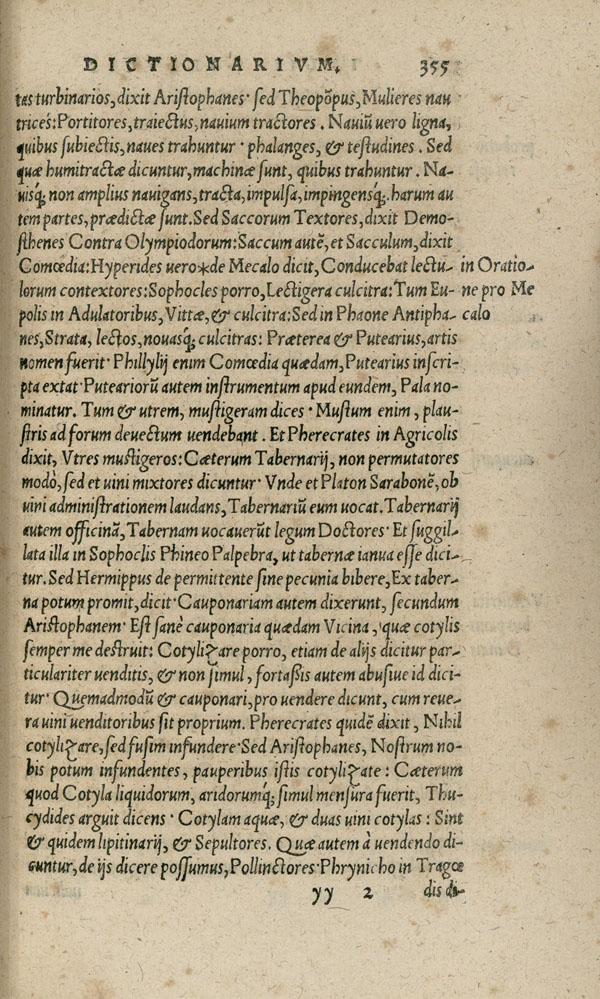 DICTIONARIVM. 355
tas turbinarios, dixit Aristophanes· sed Theopõpus, Mulieres nau
trices: Portitores, traiectus, nauium tractores . Nauiũ uero ligna,
quibus subiectis, naues trahuntur · phalanges, & testudines . Sed
quæ humitractæ dicuntur, machinæ sunt, quibus trahuntur . Na-
uisq; non amplius nauigans, tracta, impulsa, impingensq; harum au
tem partes, prædictæ sunt. Sed Saccorum Textores, dixit Demo-
sthenes Contra Olympiodorum: Saccum autẽ, et Sacculum, dixit
Comœdia: Hyperides uero*de Mecalo dicit, Conducebat lectu- in Oratio-
lorum contextores: Sophocles porro, Lectigera culcitra: Tum Eu- ne pro Me
polis in Adulatoribus, Vittæ, & culcitra: Sed in Phaone Antipha- calo
nes, Strata, lectos, nouasq; culcitras: Præterea & Putearius, artis
nomen fuerit· Phillylij enim Comœdia quædam, Putearius inscri-
pta extat· Puteariorũ autem instrumentum apud eundem, Pala no-
minatur. Tum & utrem, mustigeram dices · Mustum enim, plau-
stris ad forum deuectum uendebant . Et Pherecrates in Agricolis
dixit, Vtres mustigeros: Cæterum Tabernarij, non permutatores
modò, sed et uini mixtores dicuntur · Vnde et Platon Sarabonẽ, ob
uini administrationem laudans, Tabernariũ eum uocat. Tabernarij
autem officinã, Tabernam uocauerũt legum Doctores · Et suggil-
lata illa in Sophoclis Phineo Palpebra, ut tabernæ ianua esse dici-
tur. Sed Hermippus de permittente sine pecunia bibere, Ex taber-
na potum promit, dicit· Cauponariam autem dixerunt, secundum
Aristophanem· Est sanè cauponaria quædam Vicina, quæ cotylis
semper me destruit: Cotylizare porro, etiam de alijs dicitur par-
ticulariter uenditis, & non simul, fortaßis autem abusiue id dici-
tur· Quemadmodũ & cauponari, pro uendere dicunt, cum reue-
ra uini uenditoribus sit proprium. Pherecrates quidẽ dixit, Nihil
cotylizare, sed fusim infundere· Sed Aristophanes, Nostrum no-
bis potum infundentes, pauperibus istis cotylizate : Cæterum
quod Cotyla liquidorum, aridorumq; simul mensura fuerit, Thu-
cydides arguit dicens · Cotylam aquæ, & duas uini cotylas : Sint
& quidem lipitinarij, & Sepultores. Quæ autem à uendendo di-
cuntur, de ijs dicere possumus, Pollinctores· Phrynicho in Tragœ
yy 2 dis di-